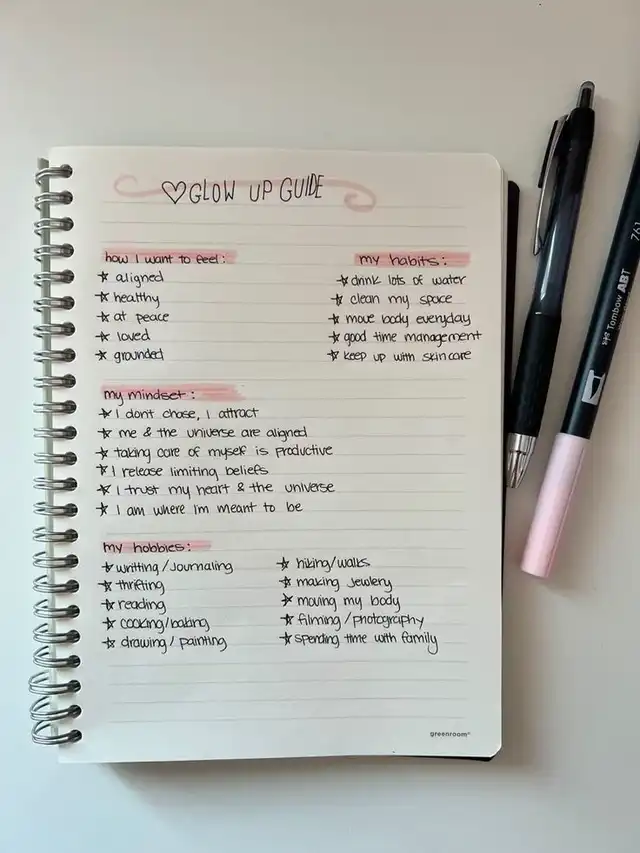 ♡GLOW UP GUIDE
how I want to feel:
☆ aligned
☆ healthy
☆ at peace
☆ loved
☆ grounded
my habits:
☆ drink lots of water
☆ clean my space
☆ move body everyday
☆ good time management
☆ keep up with skincare
my mindset:
☆ I dont chase, I attract
☆ me & the universe are aligned
☆ taking care of myself is productive
☆ I release limiting beliefs
☆ I trust my heart & the universe
☆ I am where im meant to be
my hobbies:
☆ writting/journaling
☆ thrifting
☆ reading
☆ cooking/baking
☆ drawing/painting
☆ hiking/walks
☆ making jewlery
☆ moving my body
☆ filming/photography
☆ spending time with family
greenroom®
Tombow ABT
761